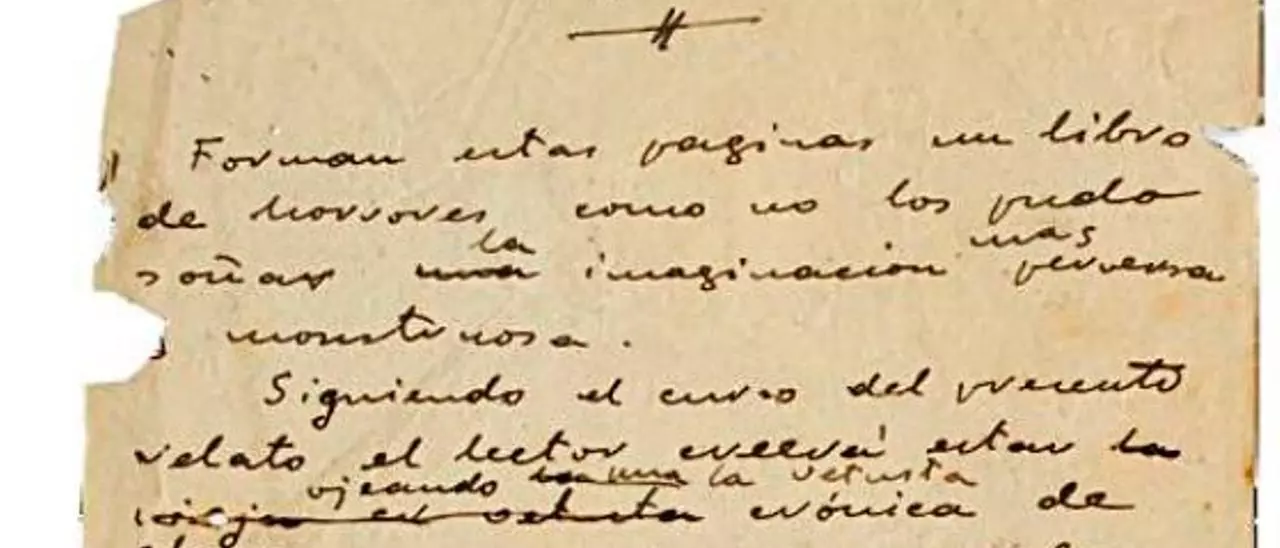 Forman estas paginas un libro
de horrores como no los pudo
la mas
soñar una imaginación perversa
monstruosa.
Siguiendo el curso del presente
relato el lector creerá estar la
ojeando una la vetusta
vetusta crónica de